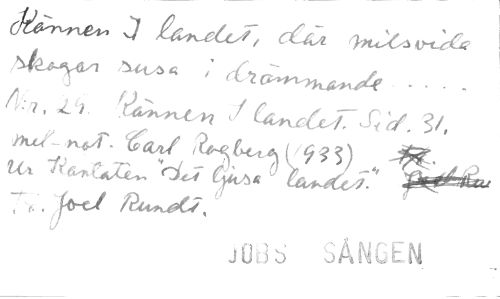 Kännen I landet, där milsvida
skogar susa i drömmande.....
N:r. 29. Kännen I landet. Sid. 31.
mel-not. Carl Rogberg (1933)
ur Kantaten "Det ljusa landet."
T:. Joel Rundt.
JOBS SÅNGEN